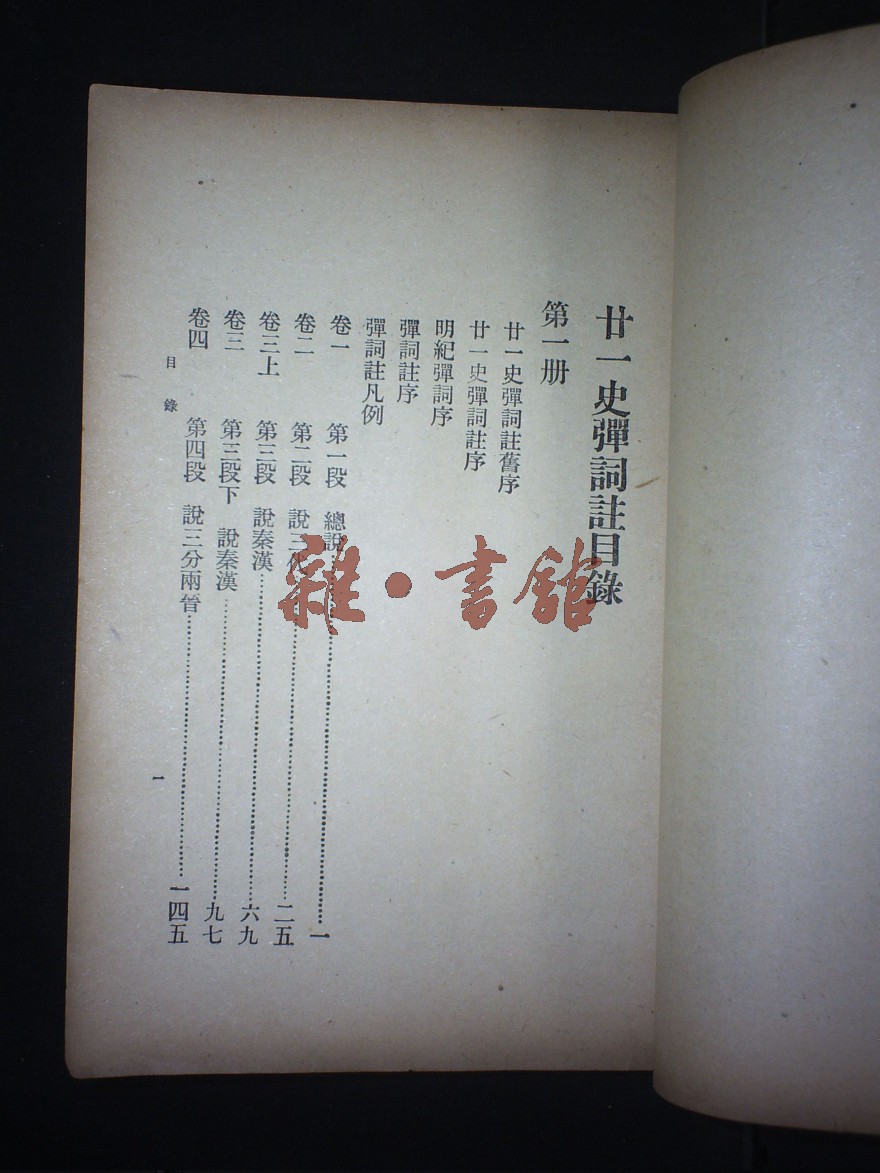 廿一史彈詞註目錄
第一册
廿一史彈詞註舊序
廿一史彈詞註序
明紀彈詞序
彈詞註序
彈詞註凡例
卷一 第一段 總說……一
卷二 第二段 說三代……二五
卷三上 第三段 說秦漢……六九
卷三 第三段下 說秦漢……九七
卷四 第四段 說三分兩晉……一四五
目錄 一
雜·書舘